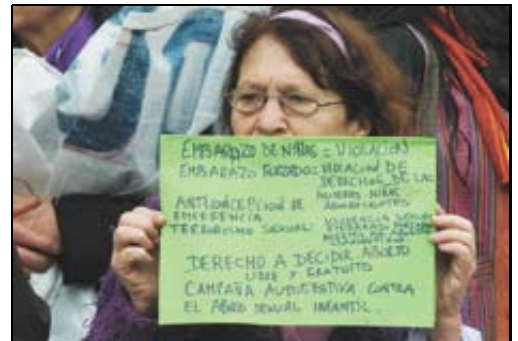 EMBARAZO DE NIÑAS = VIOLACION
EMBARAZO FORZADO: VIOLACION DE
DERECHOS DE LAS
MUJERES NIÑAS
ADOLESCENTES
ANTICONCEPCION DE
EMERGENCIA
TERRORISMO SEXUAL: VIOLENCIA SEXUAL
DERECHO A DECIDIR ABORTO
LIBRE Y GRATUITO
CAMPAÑA CONTRA
EL ABUSO SEXUAL INFANTIL.